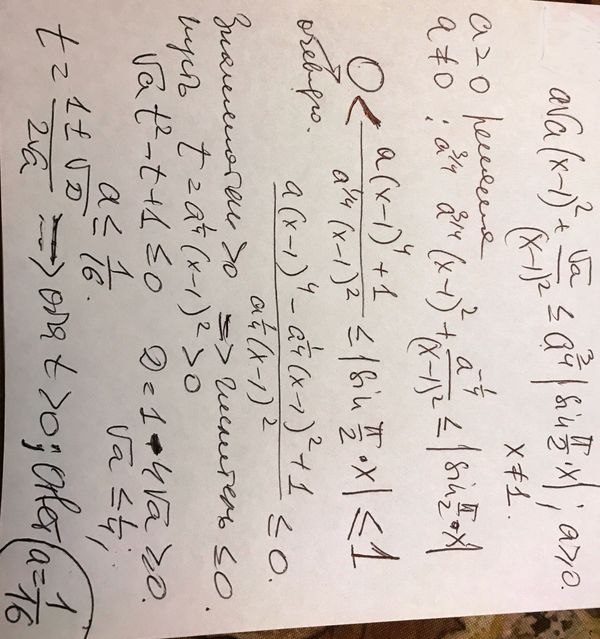 a√a(x-1)² + √a/(x-1)² ≤ a^(3/4) |sin π/2·x| ; a≥0.
x≠1.
a=0 решения
a≠0 : a^(3/4) a^(3/4)(x-1)² + a^(-1/4)/(x-1)² ≤ |sin π/2·x|
0 < (a(x-1)⁴+1)/(a^(1/4)(x-1)²) ≤ |sin π/2·x| ≤ 1
очевидно.
(a(x-1)⁴ - a^(1/4)(x-1)² + 1)/(a^(1/4)(x-1)²) ≤ 0.
Знаменатель >0 => числитель ≤0.
пусть t = a^(1/4)(x-1)² >0
√a t² - t + 1 ≤ 0 D = 1-4√a ≥ 0.
√a ≤ 1/4;
a ≤ 1/16.
t = (1±√D)/(2√a) => оба t>0; ответ a = 1/16